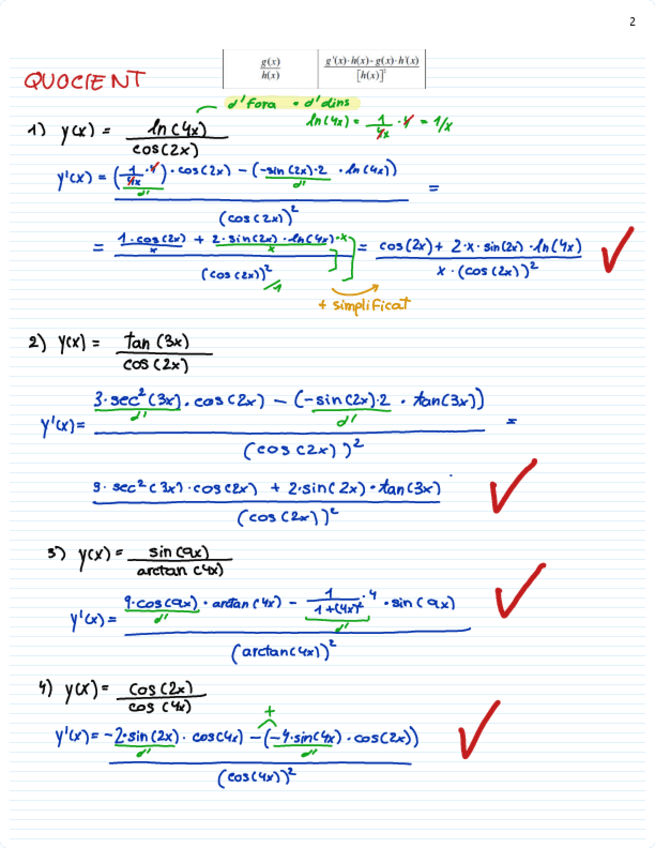 2
g(x)/h(x) | g'(x)·h(x)-g(x)·h'(x)/[h(x)]²
QUOCIENT
d'fora • d'dins
1) y(x) = ln(4x)/cos(2x)
ln(4x) = 1/4x · 4 = 1/x
y'(x) = (1/4x · 4) · cos(2x) - (-sin(2x)·2 · ln(4x)) / (cos(2x))² =
d' d'
= 1·cos(2x)/x + 2·sin(2x)·ln(4x)·x/x / (cos(2x))²/1 = cos(2x) + 2·x·sin(2x)·ln(4x) / x·(cos(2x))²
+ simplificat
2) y(x) = tan(3x)/cos(2x)
y'(x) = 3·sec²(3x)·cos(2x) - (-sin(2x)·2 · tan(3x)) / (cos(2x))² =
d' d'
3·sec²(3x)·cos(2x) + 2·sin(2x)·tan(3x) / (cos(2x))²
3) y(x) = sin(9x)/arctan(4x)
y'(x) = 9·cos(9x)·arctan(4x) - 1/1+(4x)² ·4 · sin(9x) / (arctan(4x))²
d' d'
4) y(x) = cos(2x)/cos(4x)
+
y'(x) = -2·sin(2x)·cos(4x) - (-4·sin(4x)·cos(2x)) / (cos(4x))²
d' d'